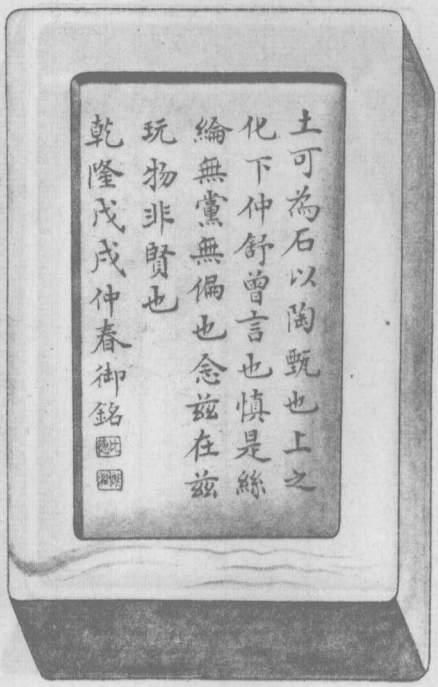 土可為石以陶甄也上之
化下仲舒曾言也慎是絲
綸無黨無偏也念茲在茲
玩物非賢也
乾隆戊戌仲春御銘